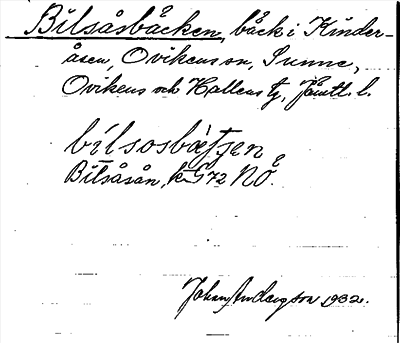 Bilsåsbäcken, bäck i Kinder-
åsen, Ovikens sn, Sunne,
Ovikens och Hallens tg, Jämtl. l.
bilsosbætjen
Bilsåsån, k G 72 NÖ.
Johan Anderson 1932.